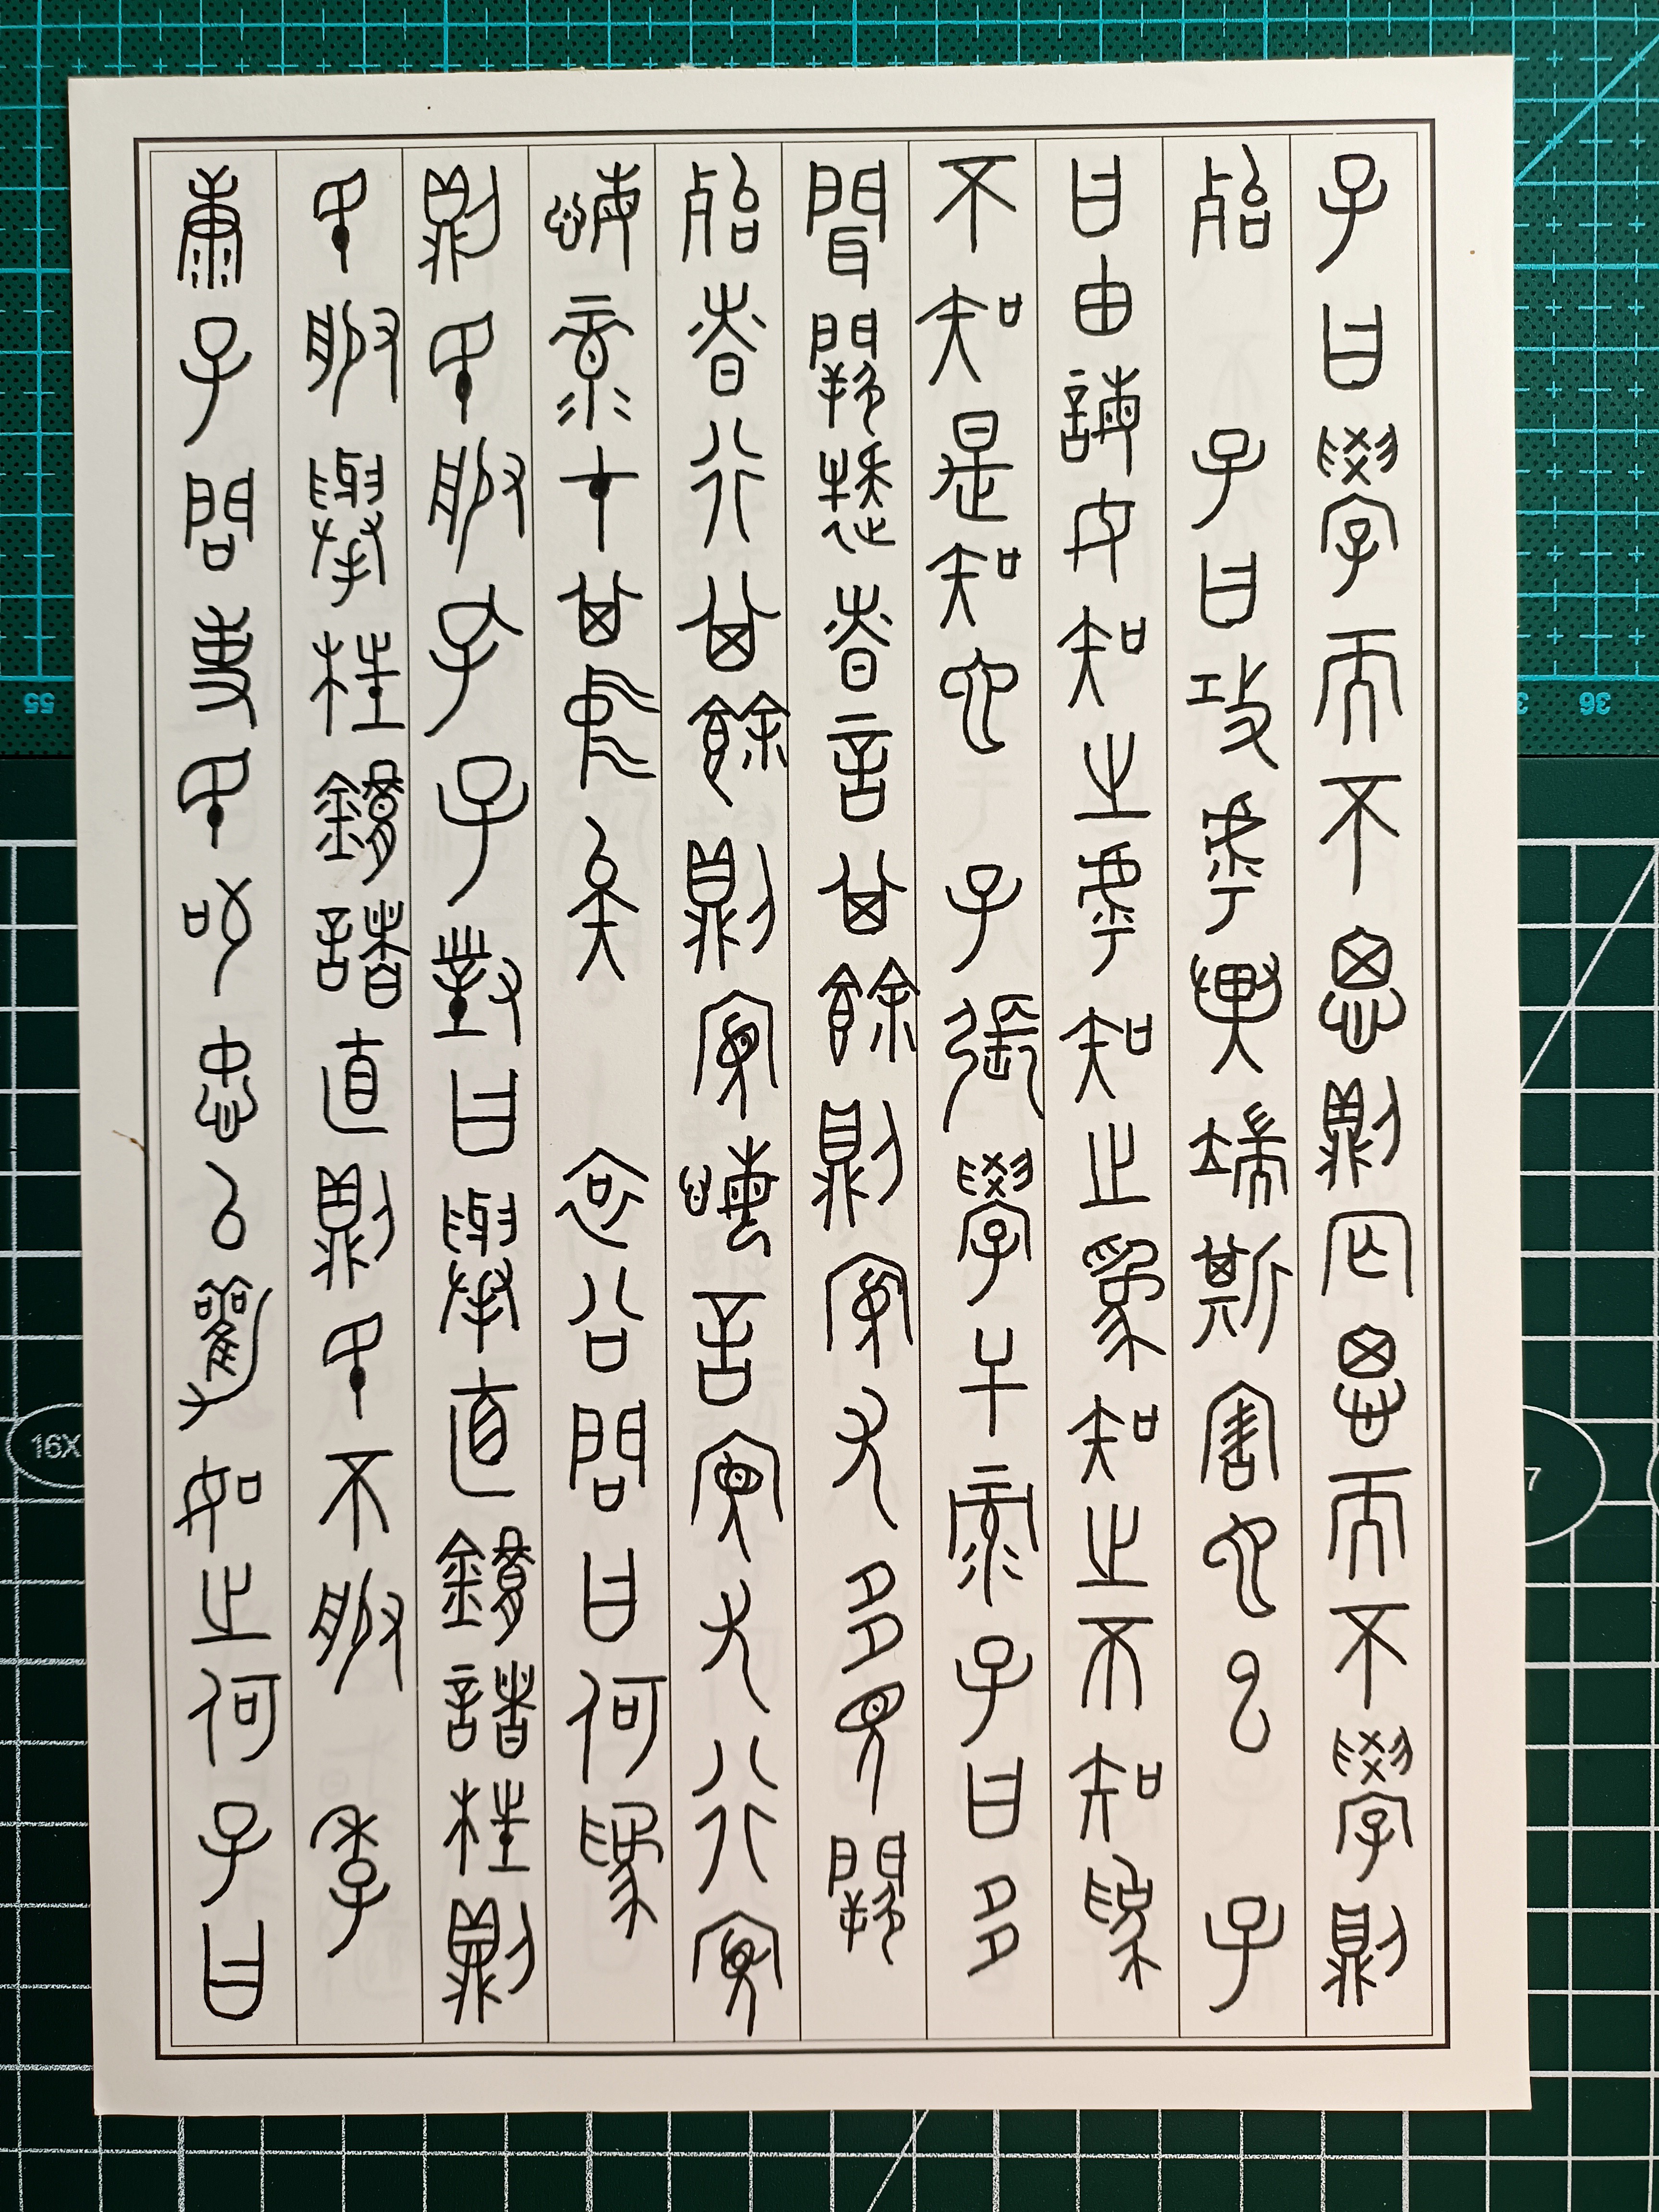 子曰學而不思則罔思而不學則
殆 子曰攻乎異端斯害也已 子
曰由誨女知之乎知之為知之不知為
不知是知也 子張學干祿子曰多
聞闕疑慎言其餘則寡尤多見闕
殆慎行其餘則寡悔言寡尤行寡
悔祿在其中矣 哀公問曰何為
則民服孔子對曰舉直錯諸枉則
民服舉枉錯諸直則民不服 季
康子問使民敬忠以勸如之何子曰
55
36
16X
7